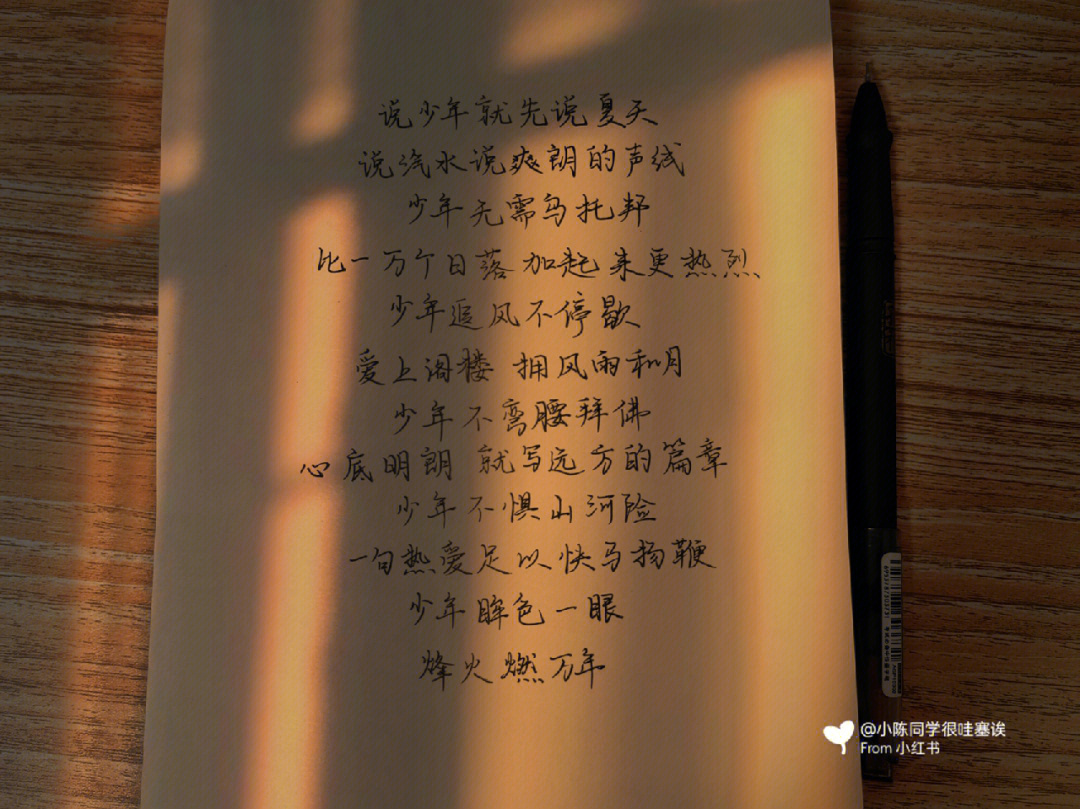 说少年就先说夏天
说汽水说爽朗的声线
少年无需乌托邦
比一万个日落加起来更热烈
少年追风不停歇
爱上阁楼 拥风雨和月
少年不弯腰拜佛
心底明朗 就写远方的篇章
少年不惧山河险
一句热爱足以快马扬鞭
少年眸色一眼
烽火燃万年
@小陈同学很哇塞诶
From 小红书